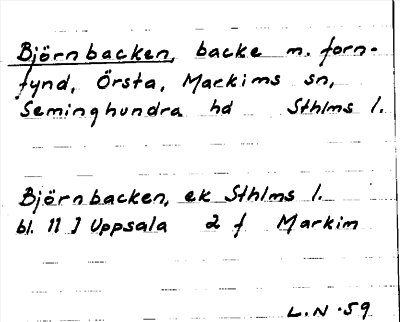 Björnbacken, backe m. forn-
fynd, Örsta, Markims sn,
Seminghundra hd Sthlms l.
Björnbacken, ek Sthlms l.
bl. 11 J Uppsala 2 f Markim
L.N.59